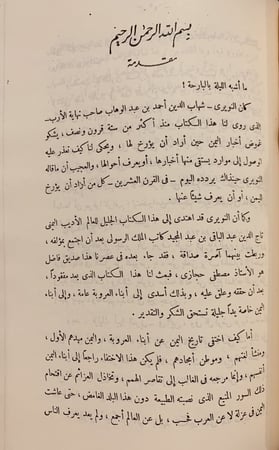 بسم الله الرحمن الرحيم
مقدمة
ما أشبه الليلة بالبارحة !
كان النويرى - شهاب الدين أحمد بن عبد الوهاب صاحب نهاية الأرب-
الذى روى لنا هذا الكتاب منذ أكثر من ستة قرون ونصف ، يشكو
غموض أخبار اليمن حين أراد أن يؤرخ لها ، ويحكى لنا كيف تعذر عليه
الوصول إلى موارد يستقى منها أخبارها ، أو يعرف أحوالها، والعجيب أن ماقاله
النويرى حينذاك يردده اليوم - فى القرن العشرين - كل من أراد أن يؤرخ
لليمن ، أو أن يعرف شيئا عنها .
وكما أن النويرى قد اهتدى إلى هذا الكتاب الجليل للعالم الأديب اليمنى
تاج الدين عبد الباقى بن عبد المجيد كاتب الملك الرسولى بعد أن اجتمع بمؤلفه ،
وربطت بينهما آصرة صداقة ، فقد جاء بعده فى عصرنا هذا صديق فاضل
هو الأستاذ مصطفى حجازى ، فبعث لنا هذا الكتاب الذى يعد مفقوداً ،
بعد أن حققه وعلق عليه ، وبذلك أسدى إلى أبناء العروبة عامة ، وإلى أبناء
اليمن خاصة يداً جليلة تستحق الشكر والتقدير .
أما كيف اختفى تاريخ اليمن عن أبناء العروبة ، واليمن مهدهم الأول ،
ومنشأ لغتهم ، وموطن أمجادهم ، فلم يكن هذا الاختفاء راجعاً إلى أبناء اليمن
أنفسهم ، وإنما مرجعه فى الغالب إلى تقاصر الهمم ، وتخاذل العزائم عن اقتحام
ذلك السور المنيع الذى نصبته الطبيعة دون هذا البلد الغامض ، حتى عاشت
اليمن فى عزلة لا عن العرب فحسب ، بل عن العالم أجمع ، ولم يعد يعرف الناس